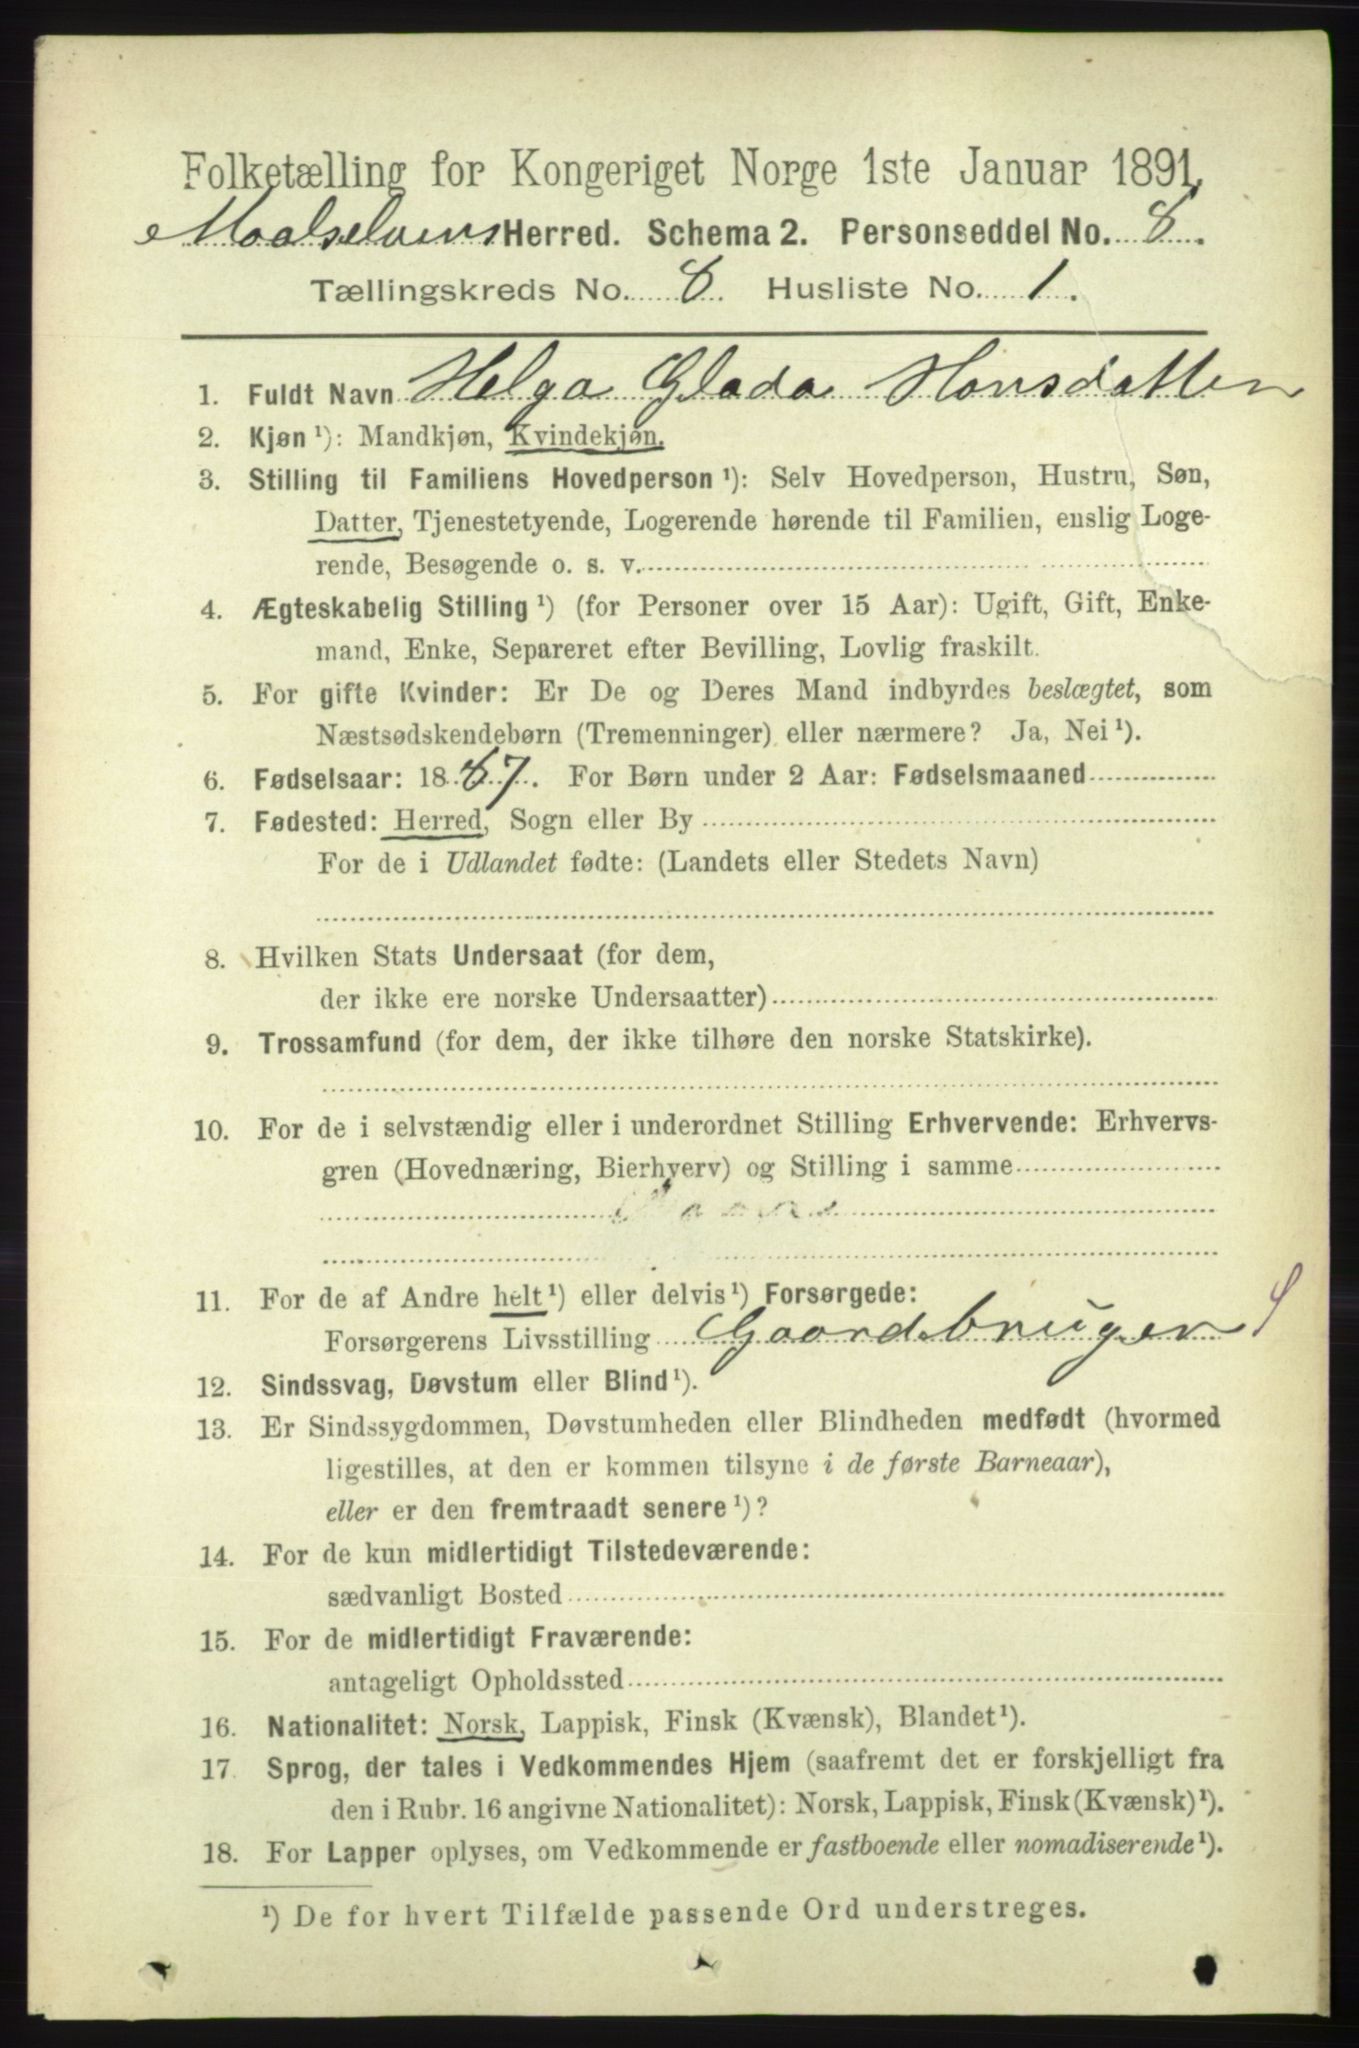 Folketælling for Kongeriget Norge 1ste Januar 1891.
Maalselvens Herred. Schema 2. Personseddel No. 8.
Tællingskreds No. 8. Husliste No. 1.
1. Fuldt Navn Helga Glada Hansdatter
2. Kjøn ¹): Mandkjøn, Kvindekjøn.
3. Stilling til Familiens Hovedperson ¹): Selv Hovedperson, Hustru, Søn,
Datter, Tjenestetyende, Logerende hørende til Familien, enslig Loge-
rende, Besøgende o. s. v.
4. Ægteskabelig Stilling ¹) (for Personer over 15 Aar): Ugift, Gift, Enke-
mand, Enke, Separeret efter Bevilling, Lovlig fraskilt.
5. For gifte Kvinder: Er De og Deres Mand indbyrdes beslægtet, som
Næstsødskendebørn (Tremenninger) eller nærmere? Ja, Nei ¹).
6. Fødselsaar: 1887. For Børn under 2 Aar: Fødselsmaaned
7. Fødested: Herred, Sogn eller By
For de i Udlandet fødte: (Landets eller Stedets Navn)
8. Hvilken Stats Undersaat (for dem,
der ikke ere norske Undersaatter)
9. Trossamfund (for dem, der ikke tilhøre den norske Statskirke).
10. For de i selvstændig eller i underordnet Stilling Erhvervende: Erhvervs-
gren (Hovednæring, Bierhverv) og Stilling i samme
11. For de af Andre helt ¹) eller delvis ¹) Forsørgede:
Forsørgerens Livsstilling Gaardbruger
12. Sindssvag, Døvstum eller Blind ¹).
13. Er Sindssygdommen, Døvstumheden eller Blindheden medfødt (hvormed
ligestilles, at den er kommen tilsyne i de første Barneaar),
eller er den fremtraadt senere ¹)?
14. For de kun midlertidigt Tilstedeværende:
sædvanligt Bosted
15. For de midlertidigt Fraværende:
antageligt Opholdssted
16. Nationalitet: Norsk, Lappisk, Finsk (Kvænsk), Blandet ¹).
17. Sprog, der tales i Vedkommendes Hjem (saafremt det er forskjelligt fra
den i Rubr. 16 angivne Nationalitet): Norsk, Lappisk, Finsk (Kvænsk) ¹).
18. For Lapper oplyses, om Vedkommende er fastboende eller nomadiserende ¹).
¹) De for hvert Tilfælde passende Ord understreges.